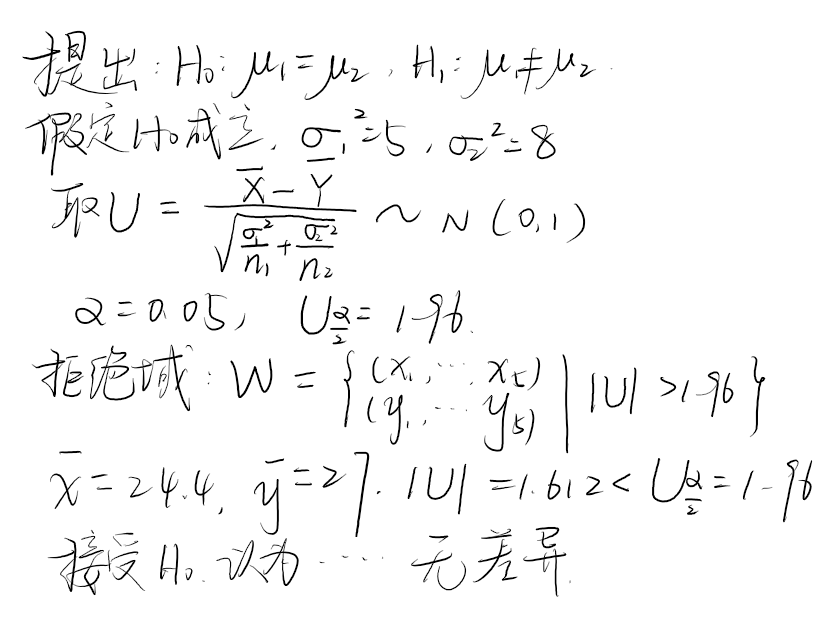 提出：H₀：μ₁=μ₂，H₁：μ₁≠μ₂.
假定H₀成立，σ₁²=5，σ₂²=8
取U = (X̄ - Ȳ) / √(σ₁²/n₁ + σ₂²/n₂) ~ N(0,1)
α=0.05，U_{α/2}=1.96.
拒绝域：W = {(x₁,…,x₅) (y₁,…y₅) | |U|>1.96}
x̄=24.4，ȳ=27. |U|=1.612<U_{α/2}=1.96
接受H₀.认为……无差异.